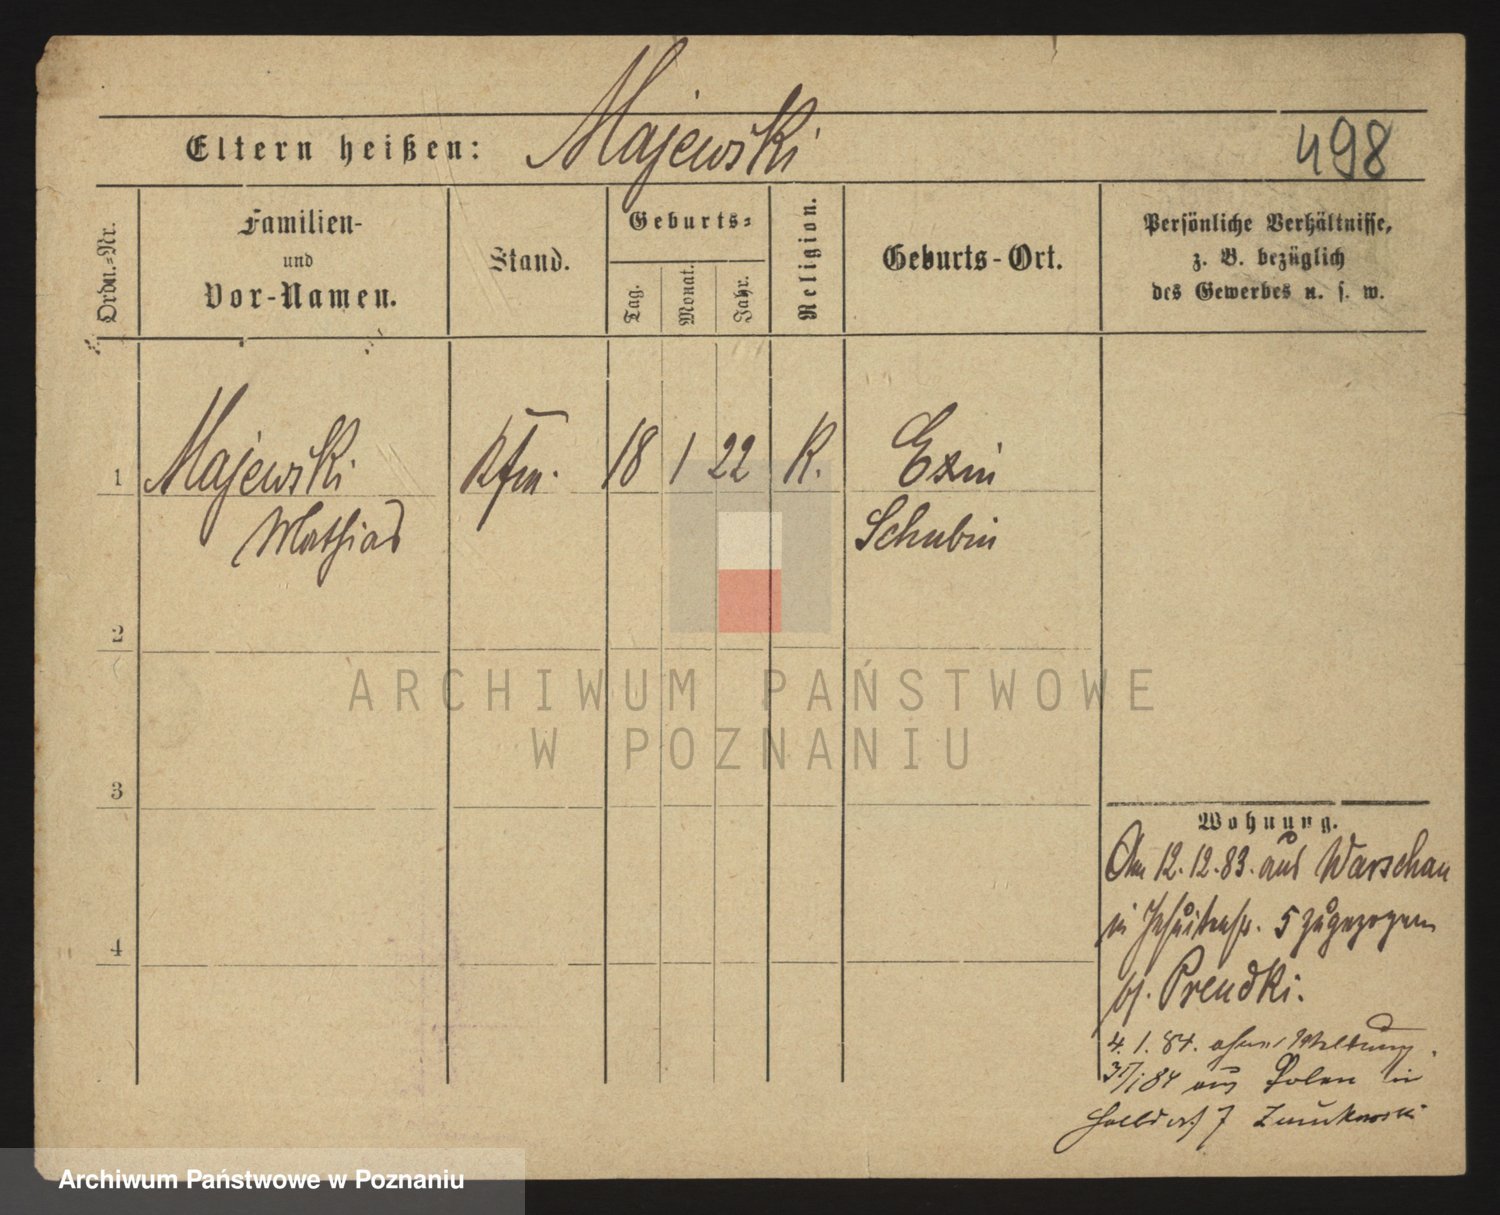 Eltern heißen: Majewski
498
Ordn.-Nr.
Familien-
und
Vor-Namen.
Stand.
Geburts-
Tag.
Monat.
Jahr.
Religion.
Geburts-Ort.
Persönliche Verhältnisse,
z. B. bezüglich
des Gewerbes u. s. w.
1 Majewski Kfm. 18 1 22 K. Exin
Mathias Schubin
2
ARCHIWUM PAŃSTWOWE
W POZNANIU
3
Wohnung.
Am 12.12.83. aus Warschau
in Jesuitenstr. 5 zugezogen
bj. Prendki.
4
4. 1. 84. ohne Meldung.
31/1 84 aus Polen in
7
Archiwum Państwowe w Poznaniu